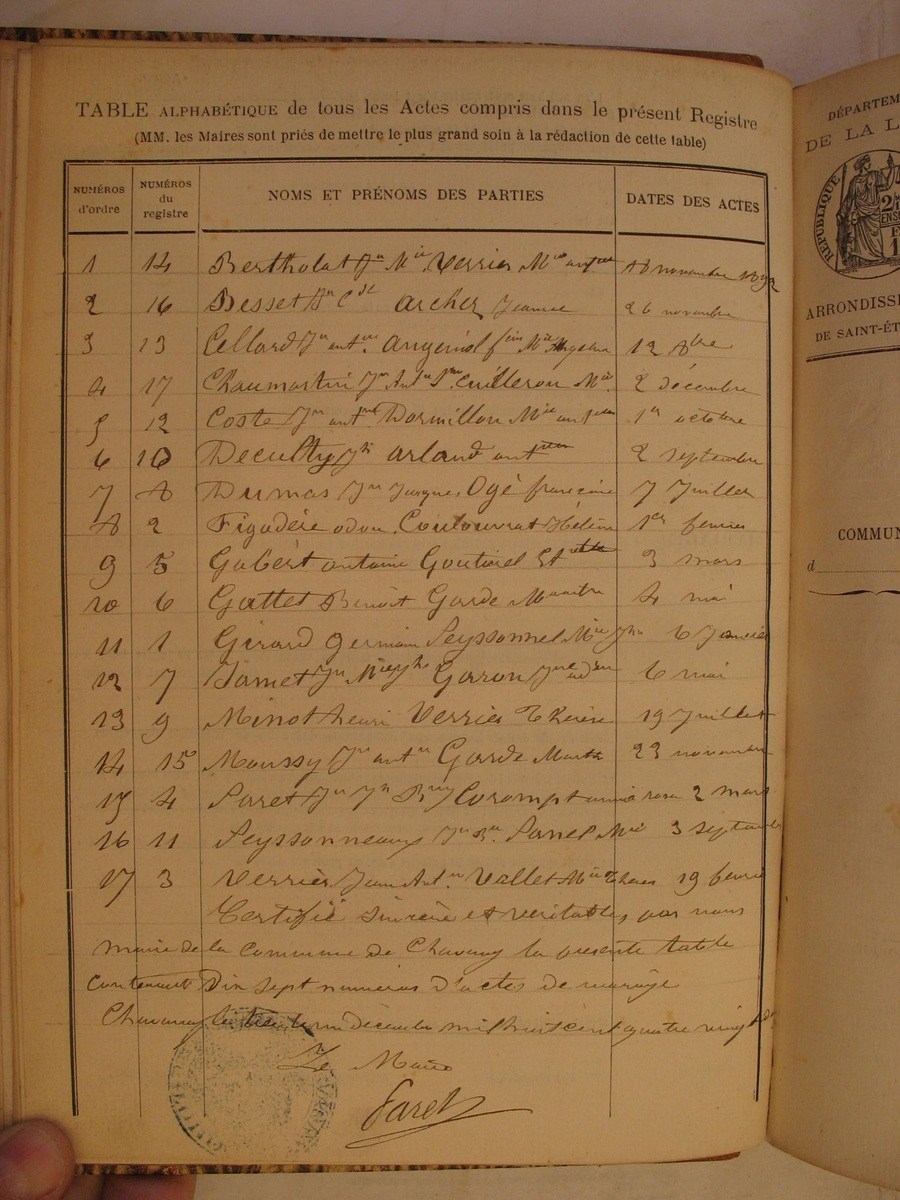 TABLE ALPHABÉTIQUE de tous les Actes compris dans le présent Registre
(MM. les Maires sont priés de mettre le plus grand soin à la rédaction de cette table)
NUMÉROS d'ordre NUMÉROS du registre NOMS ET PRÉNOMS DES PARTIES DATES DES ACTES
1 14 Bertholat Jn Mie Verrier Mie antte 18 novembre 1892
2 16 Besset Jn Cde Archer Jeanne 26 novembre
3 13 Cellard Jn antne Angéniol Mie 12 8bre
4 17 Chaumartin Jn Cuilleron Mie 2 décembre
5 12 Coste Jn Dormillon Mie 1er octobre
6 10 Decultty Jh Arland 2 septembre
7 8 Dumas Jn Jacques Ogé françoise 7 Juillet
8 2 Figadère odon Coulouvrat Hélène 1er février
9 5 Gabert antoine 3 mars
10 6 Gattet Benoît Garde 4 mai
11 1 Girard germain Peyssonnel Mie Jne 6 Janvier
12 7 Jamet Garron 6 mai
13 9 Minot henri Verrier Thérèse 19 Juillet
14 15 Moussy Jn antne Garde Marthe 23 novembre
15 4 Paret Jn Corompt annie rosa 2 mars
16 11 Peyssonneaux Jn Panel Mie 3 septembre
17 3 Verrier Jean Antne Vallet Mie Thérèse 19 février
Certifié sincère et véritable, par nous
maire de la commune de Chavanay la présente table
contenant Dix sept numéros d'actes de mariage
Chavanay le trente un décembre mil huit cent quatre vingt
Le Maire
Paret
DÉPARTEM
DE LA L
RÉPUBLIQUE
ARRONDISSE
DE SAINT-ÉT
COMMUN
d